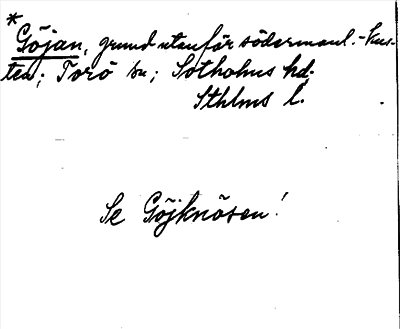 *
Göjan, grund utanför södermanl.-kus-
ten; Torö sn; Sotholms hd;
Sthlms l.
Se Göjknösen!